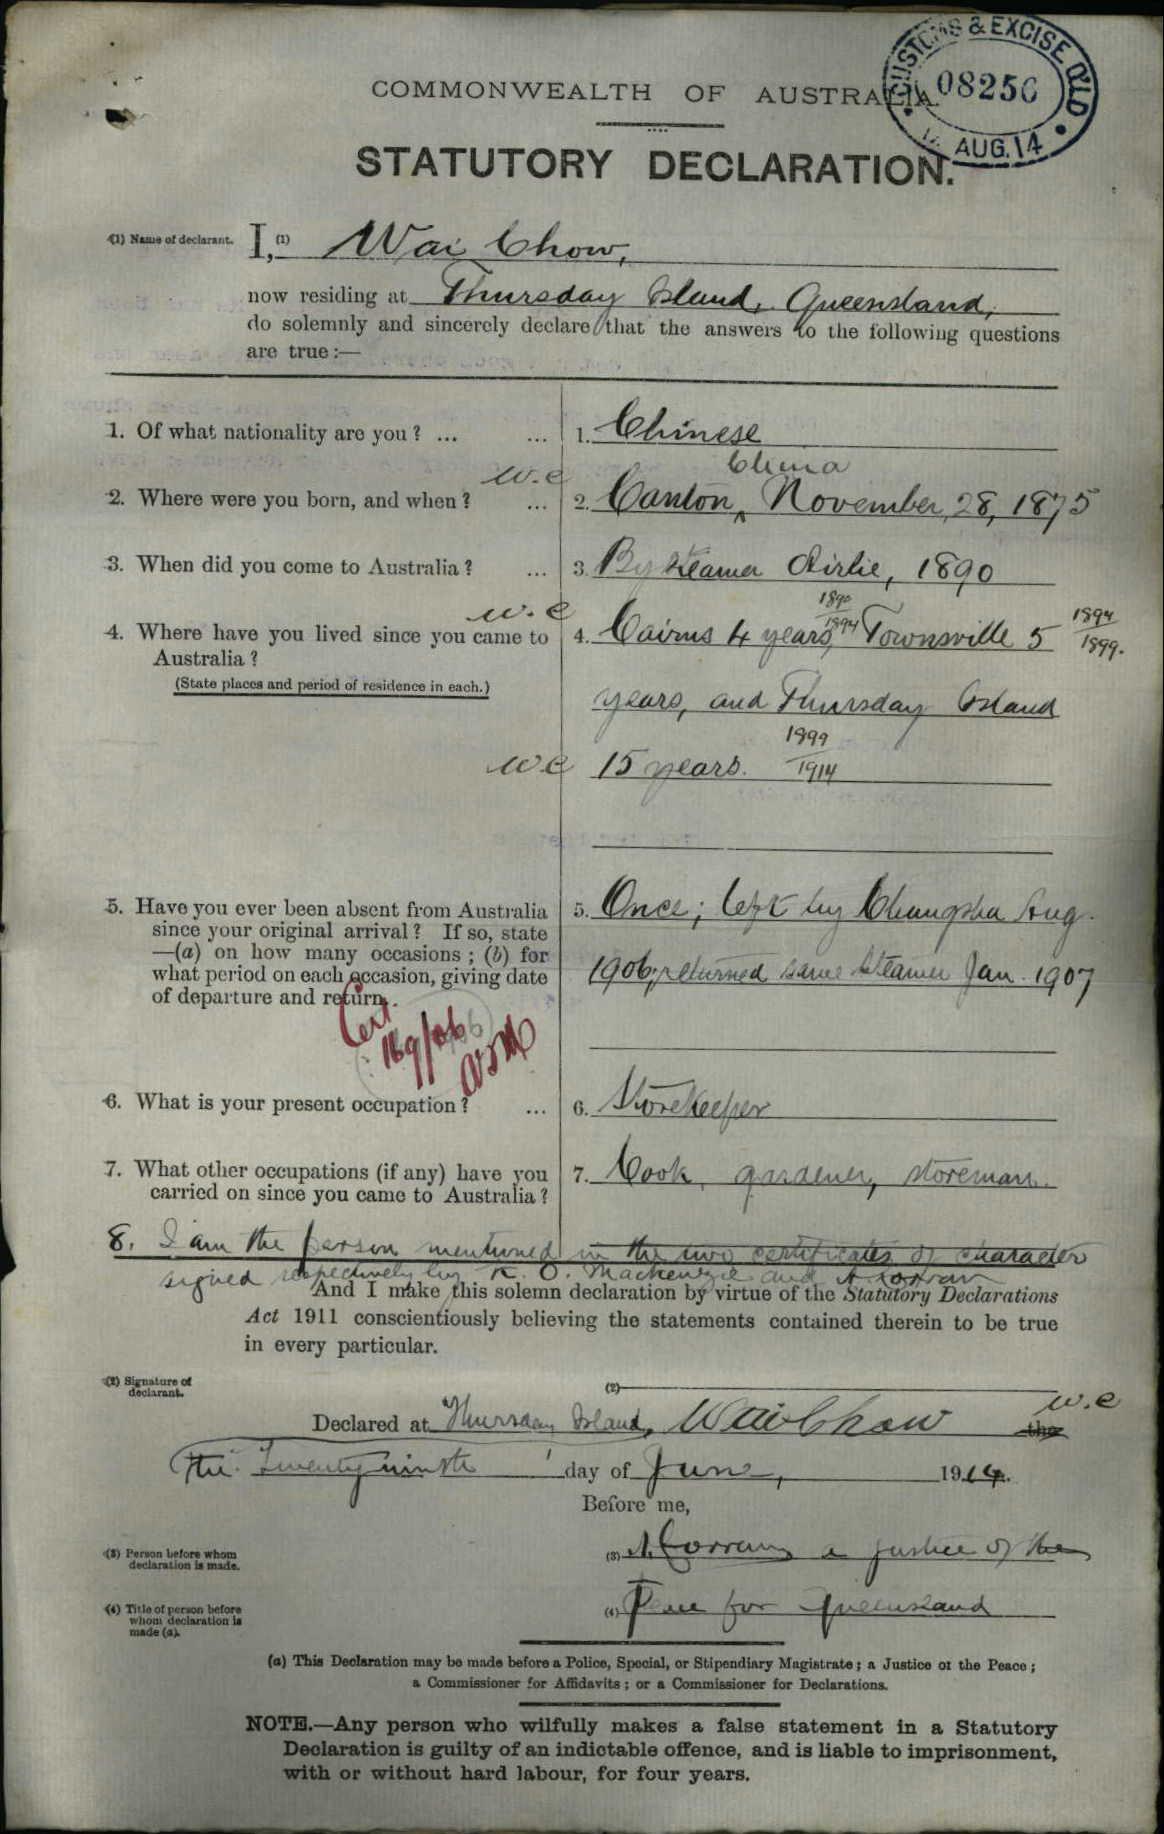 CUSTOMS & EXCISE QLD
08256
AUG. 14
COMMONWEALTH OF AUSTRALIA.
STATUTORY DECLARATION.
(1) Name of declarant. I, (1) Wai Chow,
now residing at Thursday Island, Queensland,
do solemnly and sincerely declare that the answers to the following questions
are true:—
1. Of what nationality are you? ... ... 1. Chinese
w.c China
2. Where were you born, and when? ... 2. Canton, ^ November, 28, 1875
3. When did you come to Australia? ... 3. By steamer Airlie, 1890
w.c 1890 1894
4. Where have you lived since you came to 4. Cairns 4 years, 1894 Townsville 5 1899.
Australia?
(State places and period of residence in each.)
years, and Thursday Island
1899
w.c 15 years. 1914
5. Have you ever been absent from Australia 5. Once; left by Changsha Aug.
since your original arrival? If so, state
—(a) on how many occasions; (b) for
what period on each occasion, giving date 1906; returned same steamer Jan. 1907
of departure and return.
Cert
169/06
6. What is your present occupation? ... 6. Storekeeper
7. What other occupations (if any) have you 7. Cook, gardener, storeman.
carried on since you came to Australia?
8. I am the person mentioned in the two certificates of character
signed respectively by K. O. Mackenzie and A Corran
And I make this solemn declaration by virtue of the Statutory Declarations
Act 1911 conscientiously believing the statements contained therein to be true
in every particular.
(2) Signature of
declarant.
(2)
w.c
Declared at Thursday Island, Wai Chow the
the Twenty ninth day of June, 1914.
Before me,
(3) Person before whom
declaration is made.
(3) A. Corran a Justice of the
(4) Title of person before
whom declaration is
made (a).
(4) Peace for Queensland
(a) This Declaration may be made before a Police, Special, or Stipendiary Magistrate; a Justice of the Peace;
a Commissioner for Affidavits; or a Commissioner for Declarations.
NOTE.—Any person who wilfully makes a false statement in a Statutory
Declaration is guilty of an indictable offence, and is liable to imprisonment,
with or without hard labour, for four years.